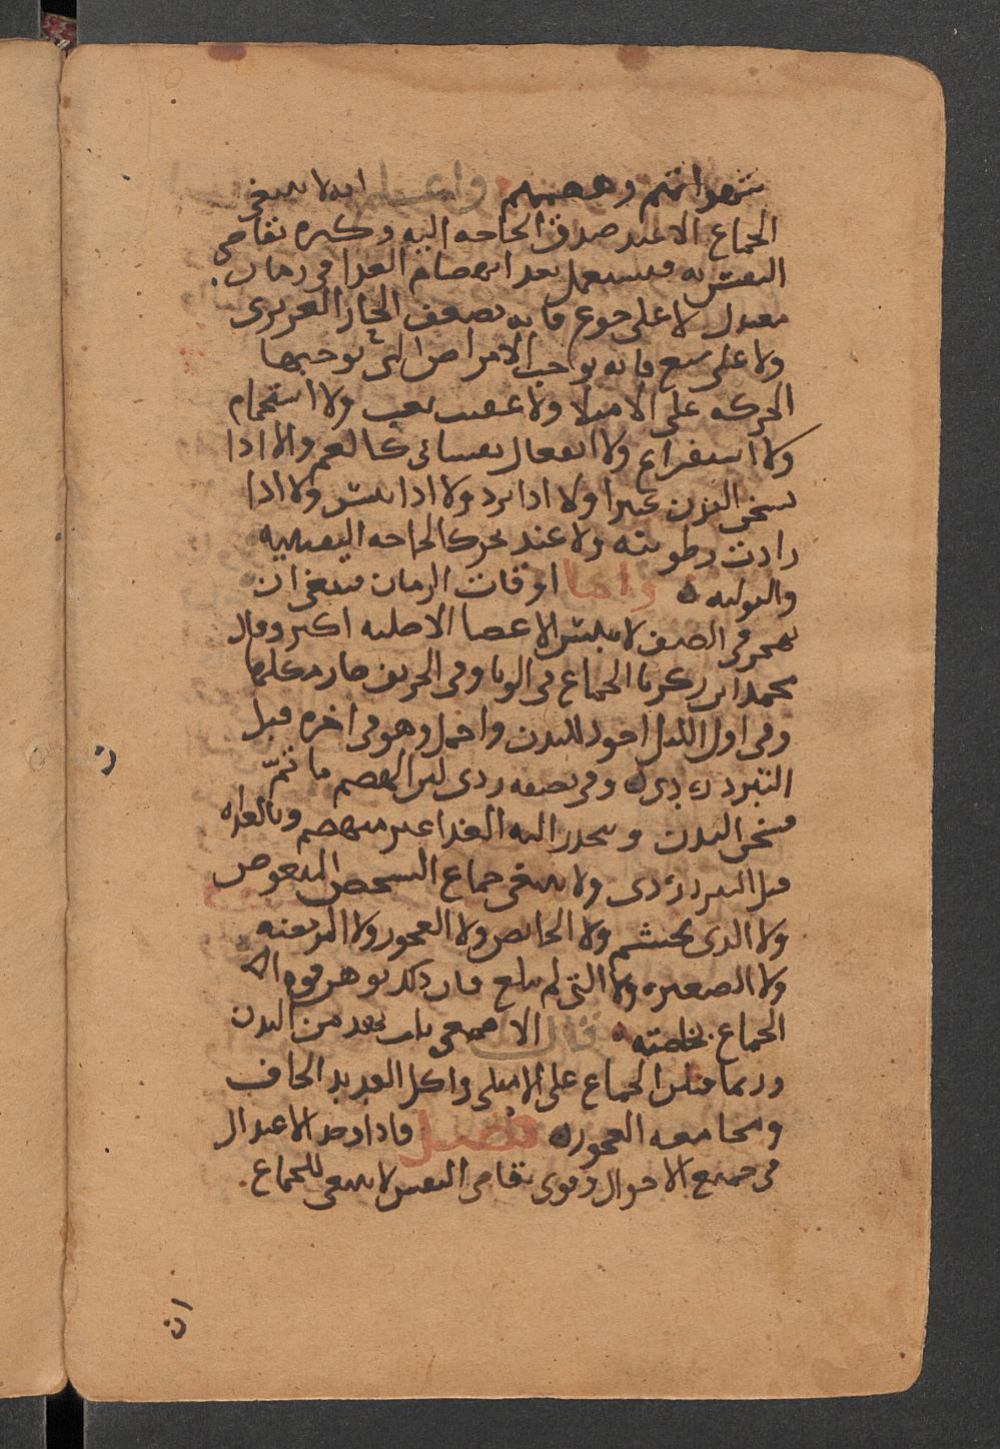 شهواتهم وهممهم واعلم انه لا ينبغي
الجماع الا عند صدق الحاجه اليه وكثره تقاضي
النفس به فيستعمل بعد انهضام الغدا في زمان
معتدل لا على جوع فانه يضعف الحار الغريزي
ولا على شبع فانه يوجب الامراض التي توجبها
الحركه على الامتلا ولا عقيب تعب ولا استحمام
ولا استفراغ ولا انفعال نفساني كالغم ولا اذا
سخن البدن كثيرا ولا اذا برد ولا اذا يبس ولا اذا
زادت رطوبته ولا عند تحرك الحاجه
والبوليه واما اوقات الزمان فينبغي ان
يهجر في الصيف لا يبس الاعضا الاصليه اكثر وقال
محمد ابن زكريا الجماع في الوبا وفي الخريف ضار مكلها
وفي اول الليل اجود للبدن واحمل وهو في اخره قبل
التبرد ردي وفي نصفه ردي لان الهضم ما تمّ
فيسخن البدن وينحدر اليه الغدا غير منهضم وبالغداه
قبل التبرد ردي ولا ينبغي جماع الشخص المبغوض
ولا الذي يحتشم ولا الحائض ولا العجوز ولا المريضه
ولا الصغيره ولا التي لم تبلغ فان ذلك يوهن قوه اله
الجماع بخاصته قال الاصمعي
وربما قتلن الجماع على الامتلى واكل القديد الجاف
ومجامعه العجوز فصل فاذا وجد الاعتدال
في جميع الاحوال وقوي تقاضي النفس لا ينبغي للجماع